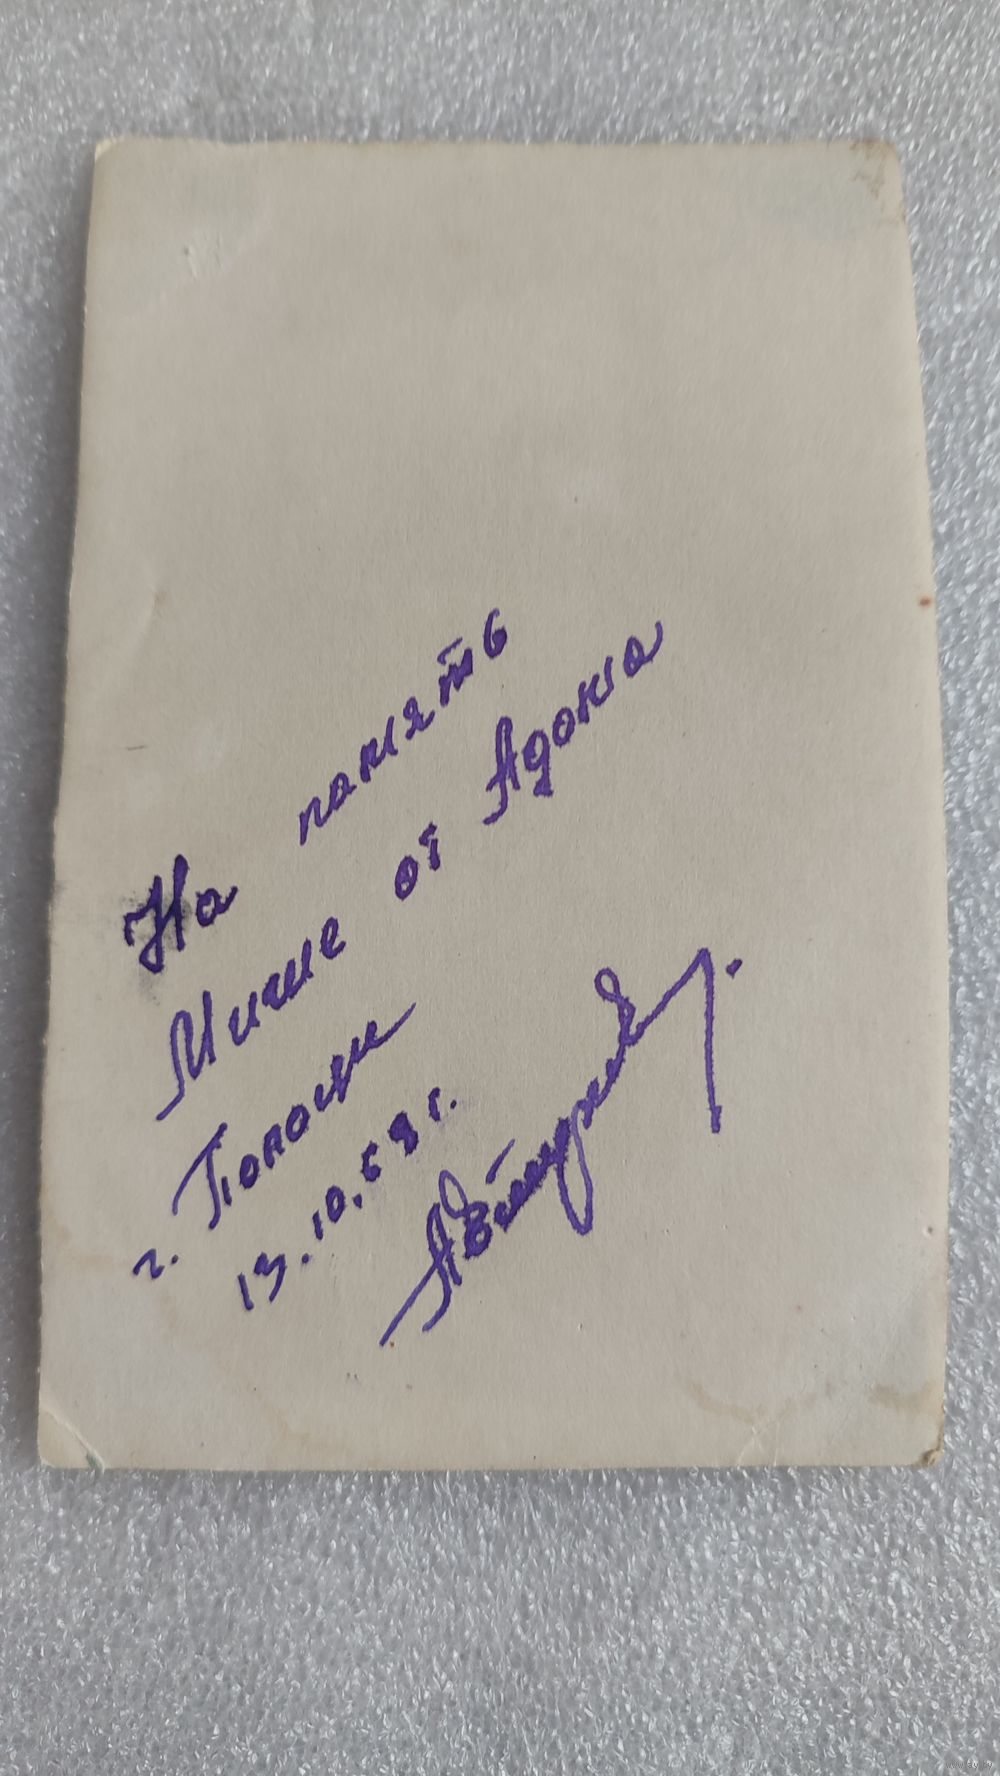 На память
Мише от Адона
г. Полоцк
13.10.69 г.